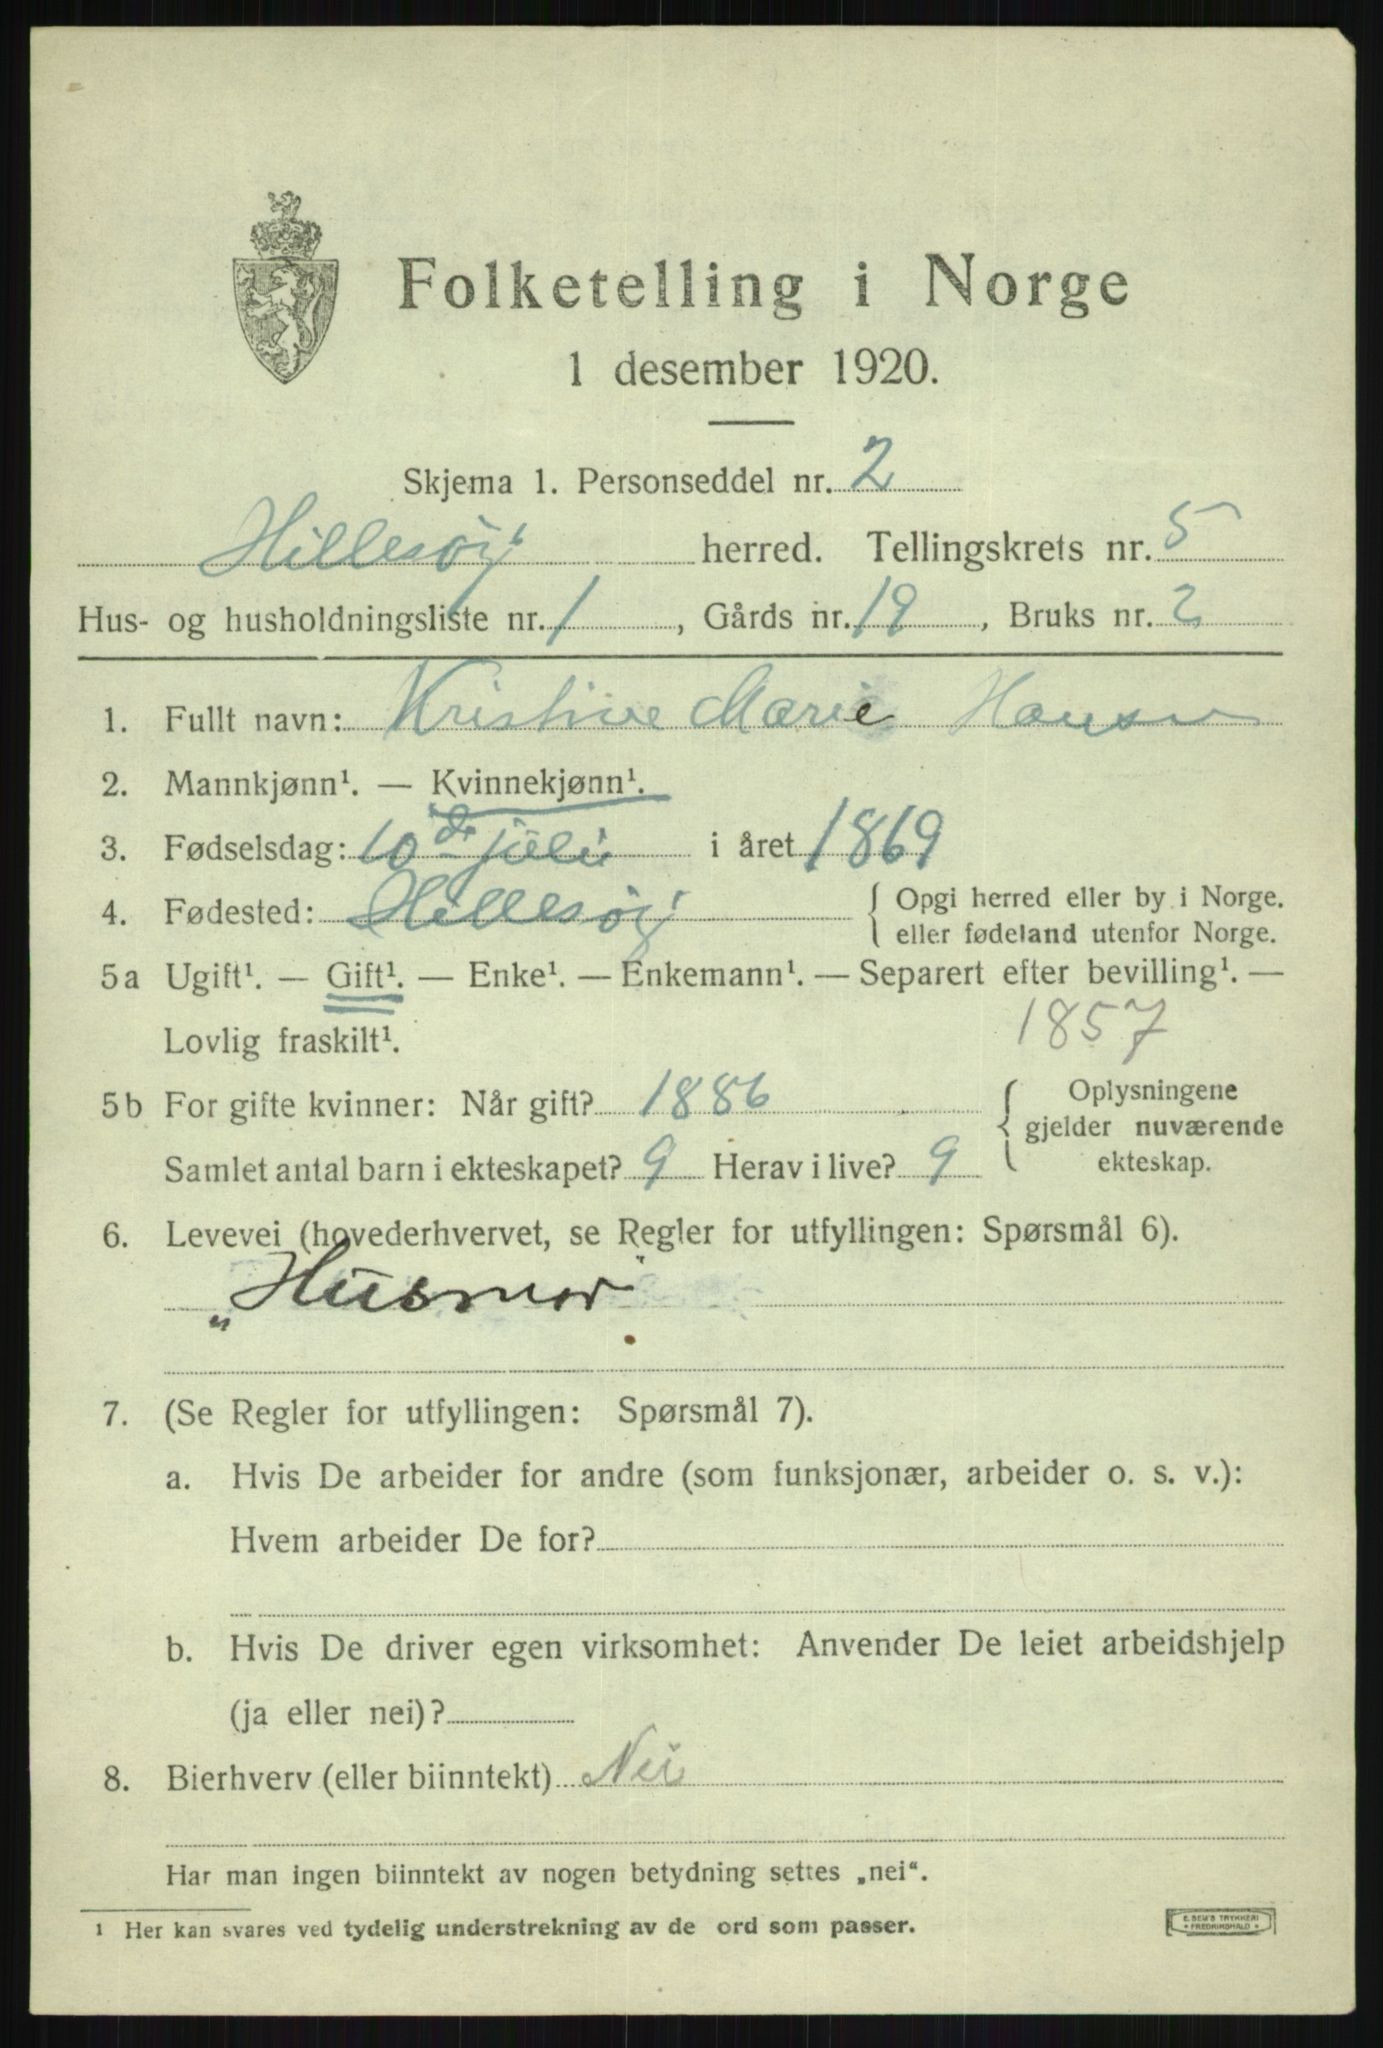 Folketelling i Norge
1 desember 1920.
Skjema 1. Personseddel nr. 2
Hillesøy herred. Tellingskrets nr. 5
Hus- og husholdningsliste nr. 1, Gårds nr. 19, Bruks nr. 2
1. Fullt navn: Kristine Marie Hansen
2. Mannkjønn¹. — Kvinnekjønn¹.
3. Fødselsdag: 10de juli i året 1869
4. Fødested: Hillesøy { Opgi herred eller by i Norge.
eller fødeland utenfor Norge.
5a Ugift¹. — Gift¹. — Enke¹. — Enkemann¹. — Separert efter bevilling¹. —
Lovlig fraskilt¹. 1857
5b For gifte kvinner: Når gift? 1886 { Oplysningene
gjelder nuværende
Samlet antal barn i ekteskapet? 9 Herav i live? 9 ekteskap.
6. Levevei (hovederhvervet, se Regler for utfyllingen: Spørsmål 6).
„Husmor"
7. (Se Regler for utfyllingen: Spørsmål 7).
a. Hvis De arbeider for andre (som funksjonær, arbeider o. s. v.):
Hvem arbeider De for?
b. Hvis De driver egen virksomhet: Anvender De leiet arbeidshjelp
(ja eller nei)?
8. Bierhverv (eller biinntekt) Nei
Har man ingen biinntekt av nogen betydning settes „nei“.
¹ Her kan svares ved tydelig understrekning av de ord som passer.
E. SEM'S TRYKKERI
FREDRIKSHALD